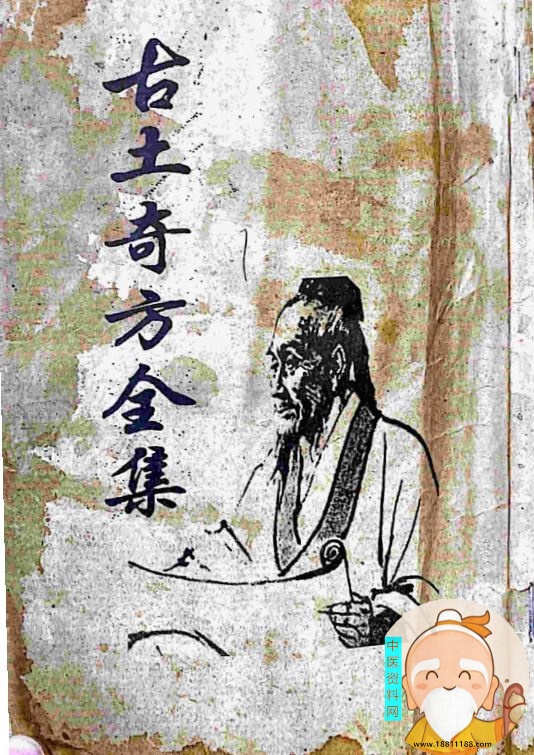 古土奇方全集
中医资料网
www.18811188.com